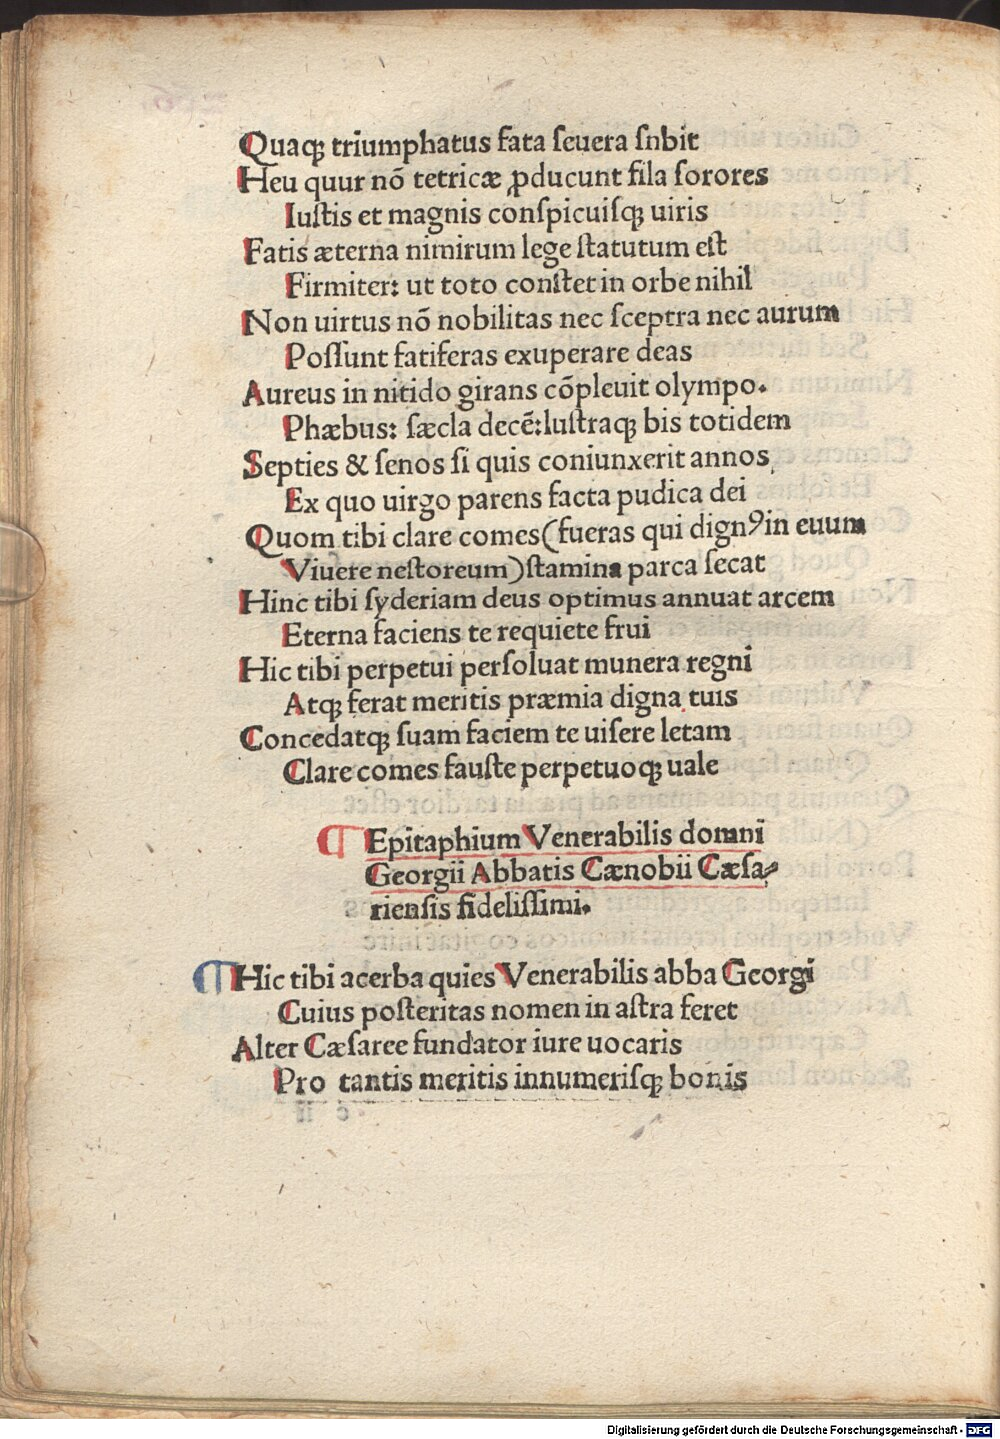 Quaqꝫ triumphatus fata ſeuera ſnbit
Heu quur nõ tetricæ ꝓducunt fila ſorores
Iuſtis et magnis conſpicuiſqꝫ uiris
Fatis æterna nimirum lege ſtatutum eſt
Firmiter: ut toto conſtet in orbe nihil
Non uirtus nõ nobilitas nec ſceptra nec aurum
Poſſunt fatiferas exuperare deas
Aureus in nitido girans cõpleuit olympo.
Phæbus: ſæcla decē:luſtraqꝫ bis totidem
Septies & ſenos ſi quis coniunxerit annos
Ex quo uirgo parens facta pudica dei
Quom tibi clare comes(fueras qui dignꝰ in euum
Viuere neſtoreum)ſtamina parca ſecat
Hinc tibi ſyderiam deus optimus annuat arcem
Eterna faciens te requiete frui
Hic tibi perpetui perſoluat munera regni
Atqꝫ ferat meritis præmia digna tuis
Concedatqꝫ ſuam faciem te uiſere letam
Clare comes fauſte perpetuoqꝫ uale
¶ Epitaphium Venerabilis domni
Georgii Abbatis Cænobii Cæſa⸗
rienſis fideliſſimi.
¶ Hic tibi acerba quies Venerabilis abba Georgi
Cuius poſteritas nomen in aſtra feret
Alter Cæſaree fundator iure uocaris
Pro tantis meritis innumeriſqꝫ bonis
Digitalisierung gefördert durch die Deutsche Forschungsgemeinschaft - DFG